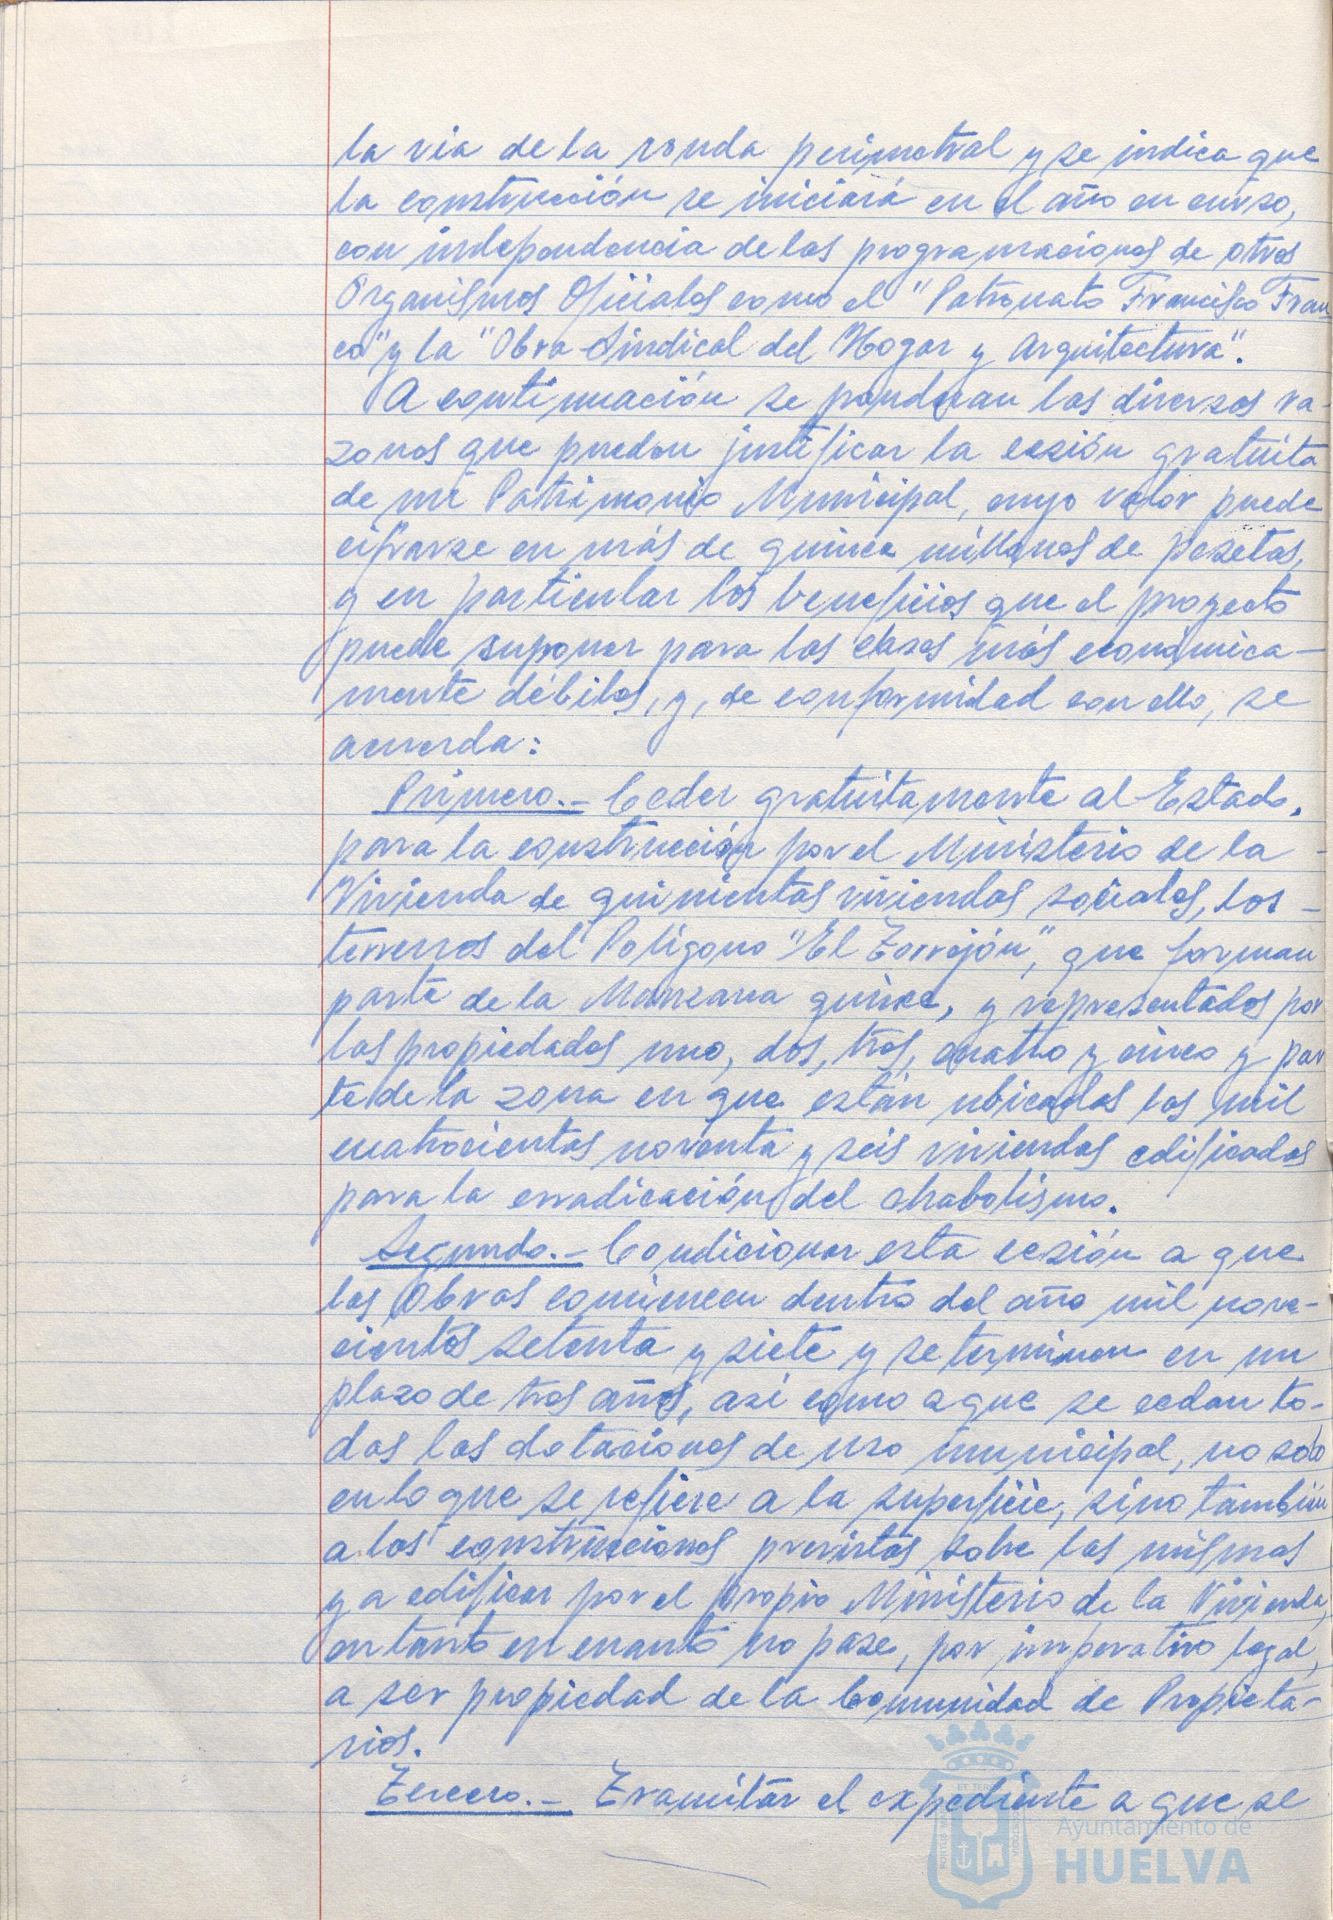 la via de la ronda perimetral y se indica que
la construcción se iniciará en el año en curso,
con independencia de las programaciones de otros
Organismos Oficiales como el "Patronato Francisco Fran-
co" y la "Obra Sindical del Hogar y Arquitectura".
A continuación se ponderan las diversas ra-
zones que pueden justificar la cesión gratuita
de un Patrimonio Municipal, cuyo valor puede
cifrarse en más de quince millones de pesetas,
y en particular los beneficios que el proyecto
puede suponer para las clases más económica-
mente débiles, y, de conformidad con ello, se
acuerda:
Primero.- Ceder gratuitamente al Estado,
para la construcción por el Ministerio de la
Vivienda de quinientas viviendas sociales, los
terrenos del Polígono "El Torrejón", que forman
parte de la Manzana quince, y representados por
las propiedades uno, dos, tres, cuatro y cinco y par
te de la zona en que están ubicadas las mil
cuatrocientas noventa y seis viviendas edificadas
para la erradicación del chabolismo.
Segundo.- Condicionar esta cesión a que
las Obras comiencen dentro del año mil nove-
cientos setenta y siete y se terminen en un
plazo de tres años, así como a que se cedan to-
das las dotaciones de uso municipal, no solo
en lo que se refiere a la superficie, sino también
a las construcciones previstas sobre las mismas
y a edificar por el propio Ministerio de la Vivienda,
en tanto en cuanto no pase, por imperativo legal,
a ser propiedad de la Comunidad de Propieta-
rios.
Tercero.- Tramitar el expediente a que se
Ayuntamiento de
HUELVA